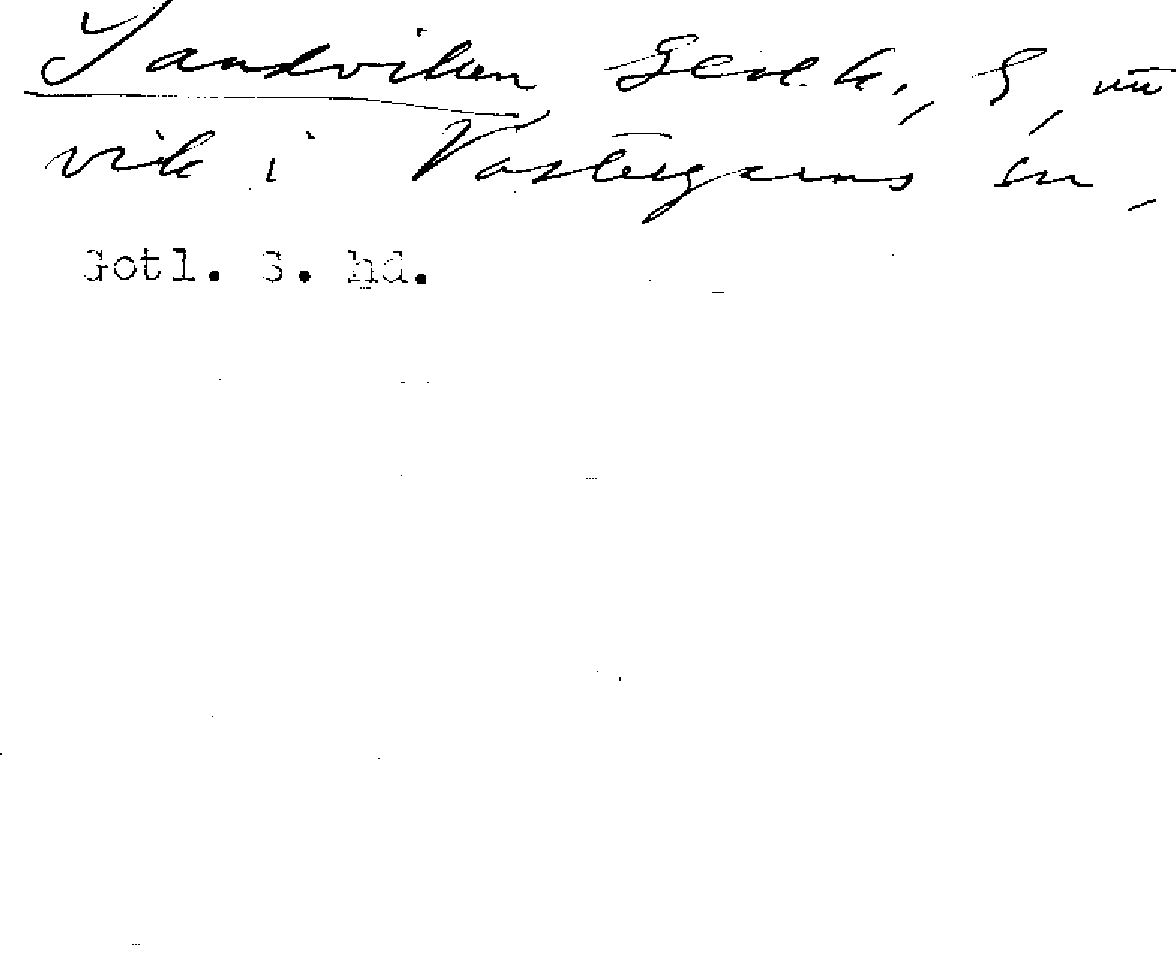 Sandviken Geol. k., S, nu
vik i Västergarns sn,
Gotl. S. hd.